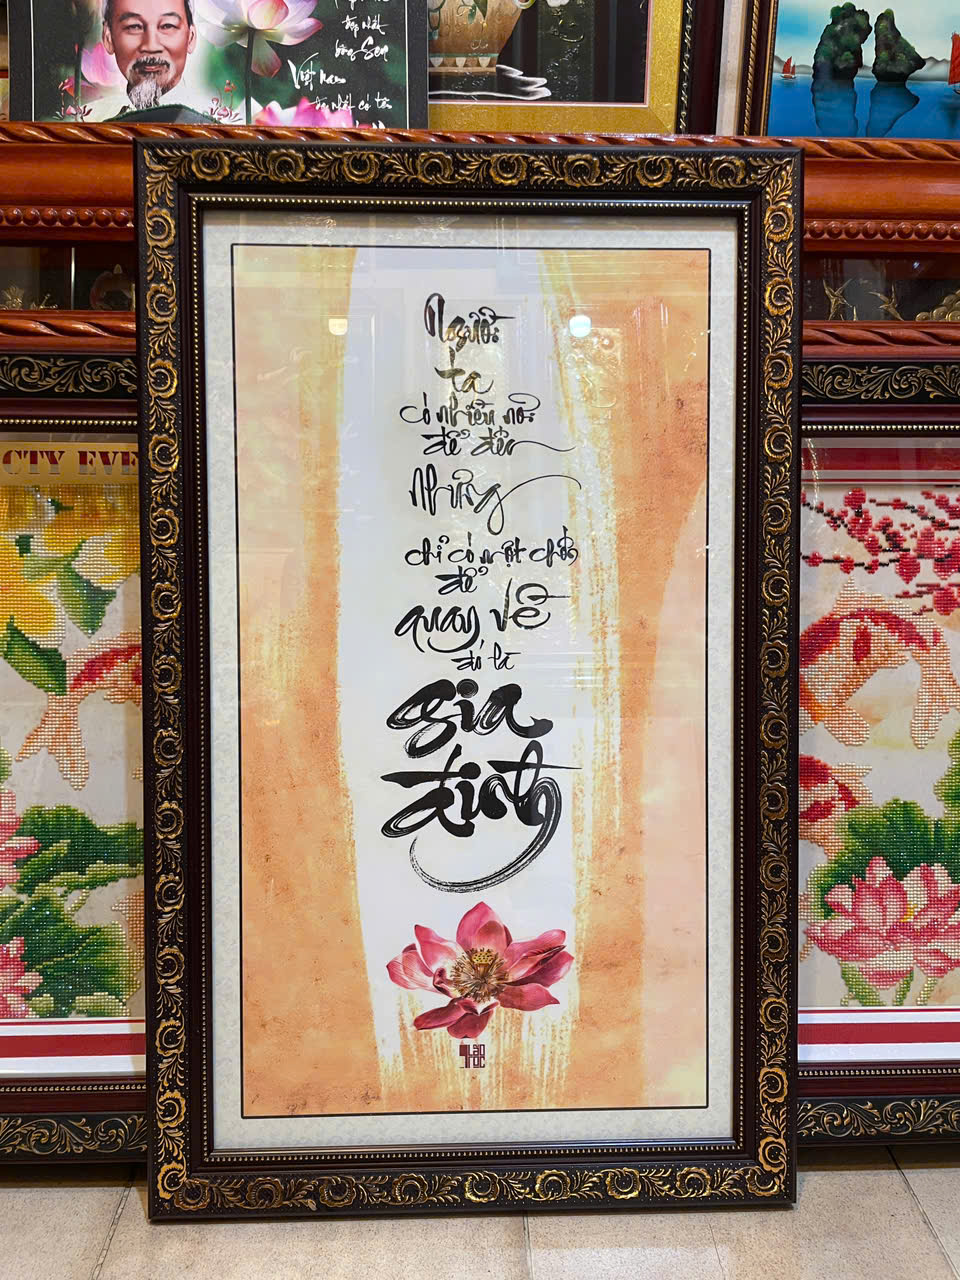 đẹp nhất
bông Sen
Việt Nam
CTY EVE
Người
ta
có nhiều nơi
để đến
Nhưng
chỉ có một chốn
để
quay về
đó là
gia
đình
Lão
Trúc